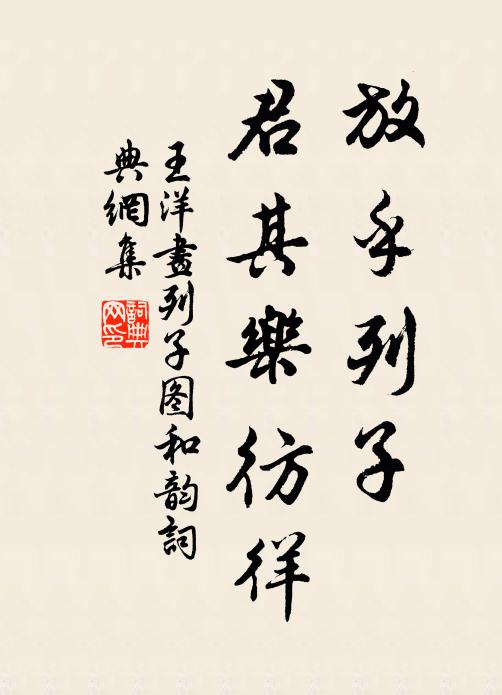 放乎列子
君其樂彷徉
王洋畫列子图和韵詞
典網集
詞典
网印